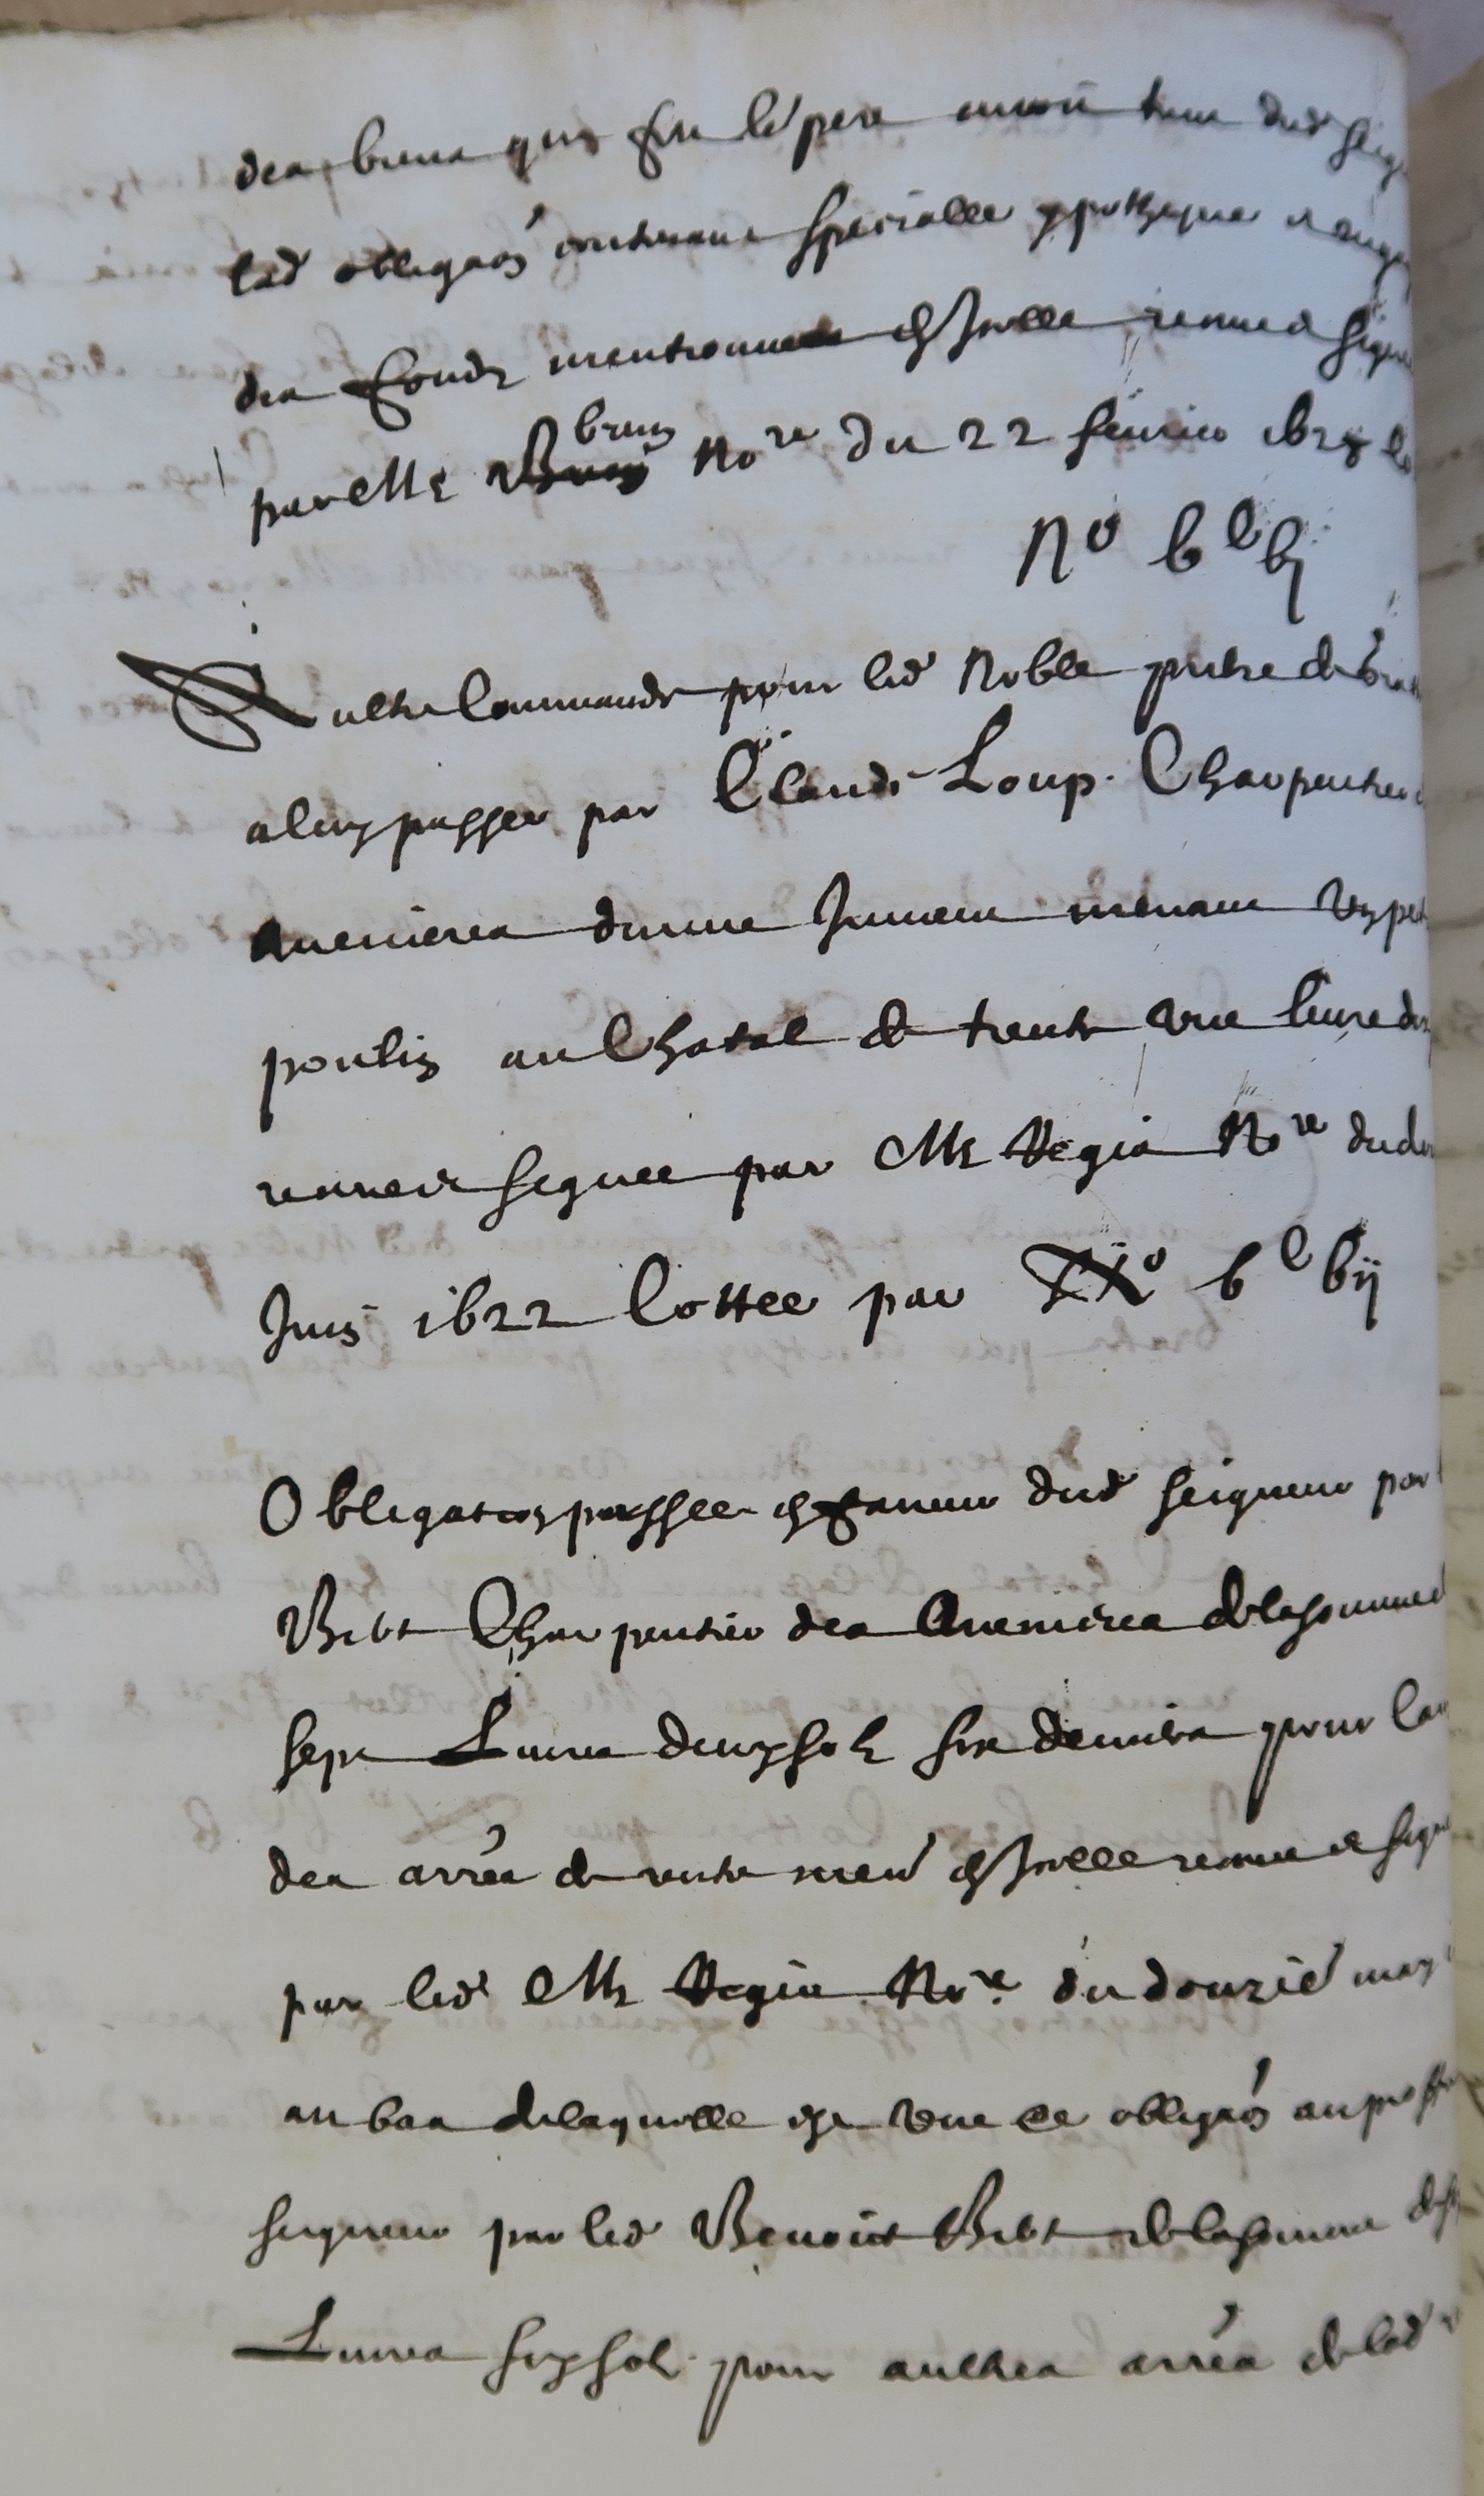 des biens que feu le pere avoit tenu dud seig
lad obligaõn contenant specialle ypotheque
des fondz mentionnes en Icelle receue et signe
par Me brun nore du 22 feuvrier 1628
No bc bj
Aultre Commande pour led Noble pierre de
a luy passee par Claude Loup Charpentier
avenieres dune Jument menant ung pet
poulin au Chatal de trente une livre
receue et signee par Me Regis Nore du
Juin 1622 Cottee par No bc bij
Obligation passee en faveur dud seigneur par
Bibt Charpentier des Avenieres de la somme
sept Livres deux solz six deniers pour
des arrés de rente men en Icelle receue et sign
par led Me Regis Nore du douzie may
au bas de laquelle est une obligaõn au proff
seigneur par led Benoist Bibt de la somme
Livres six solz pour aultres arrés de lad